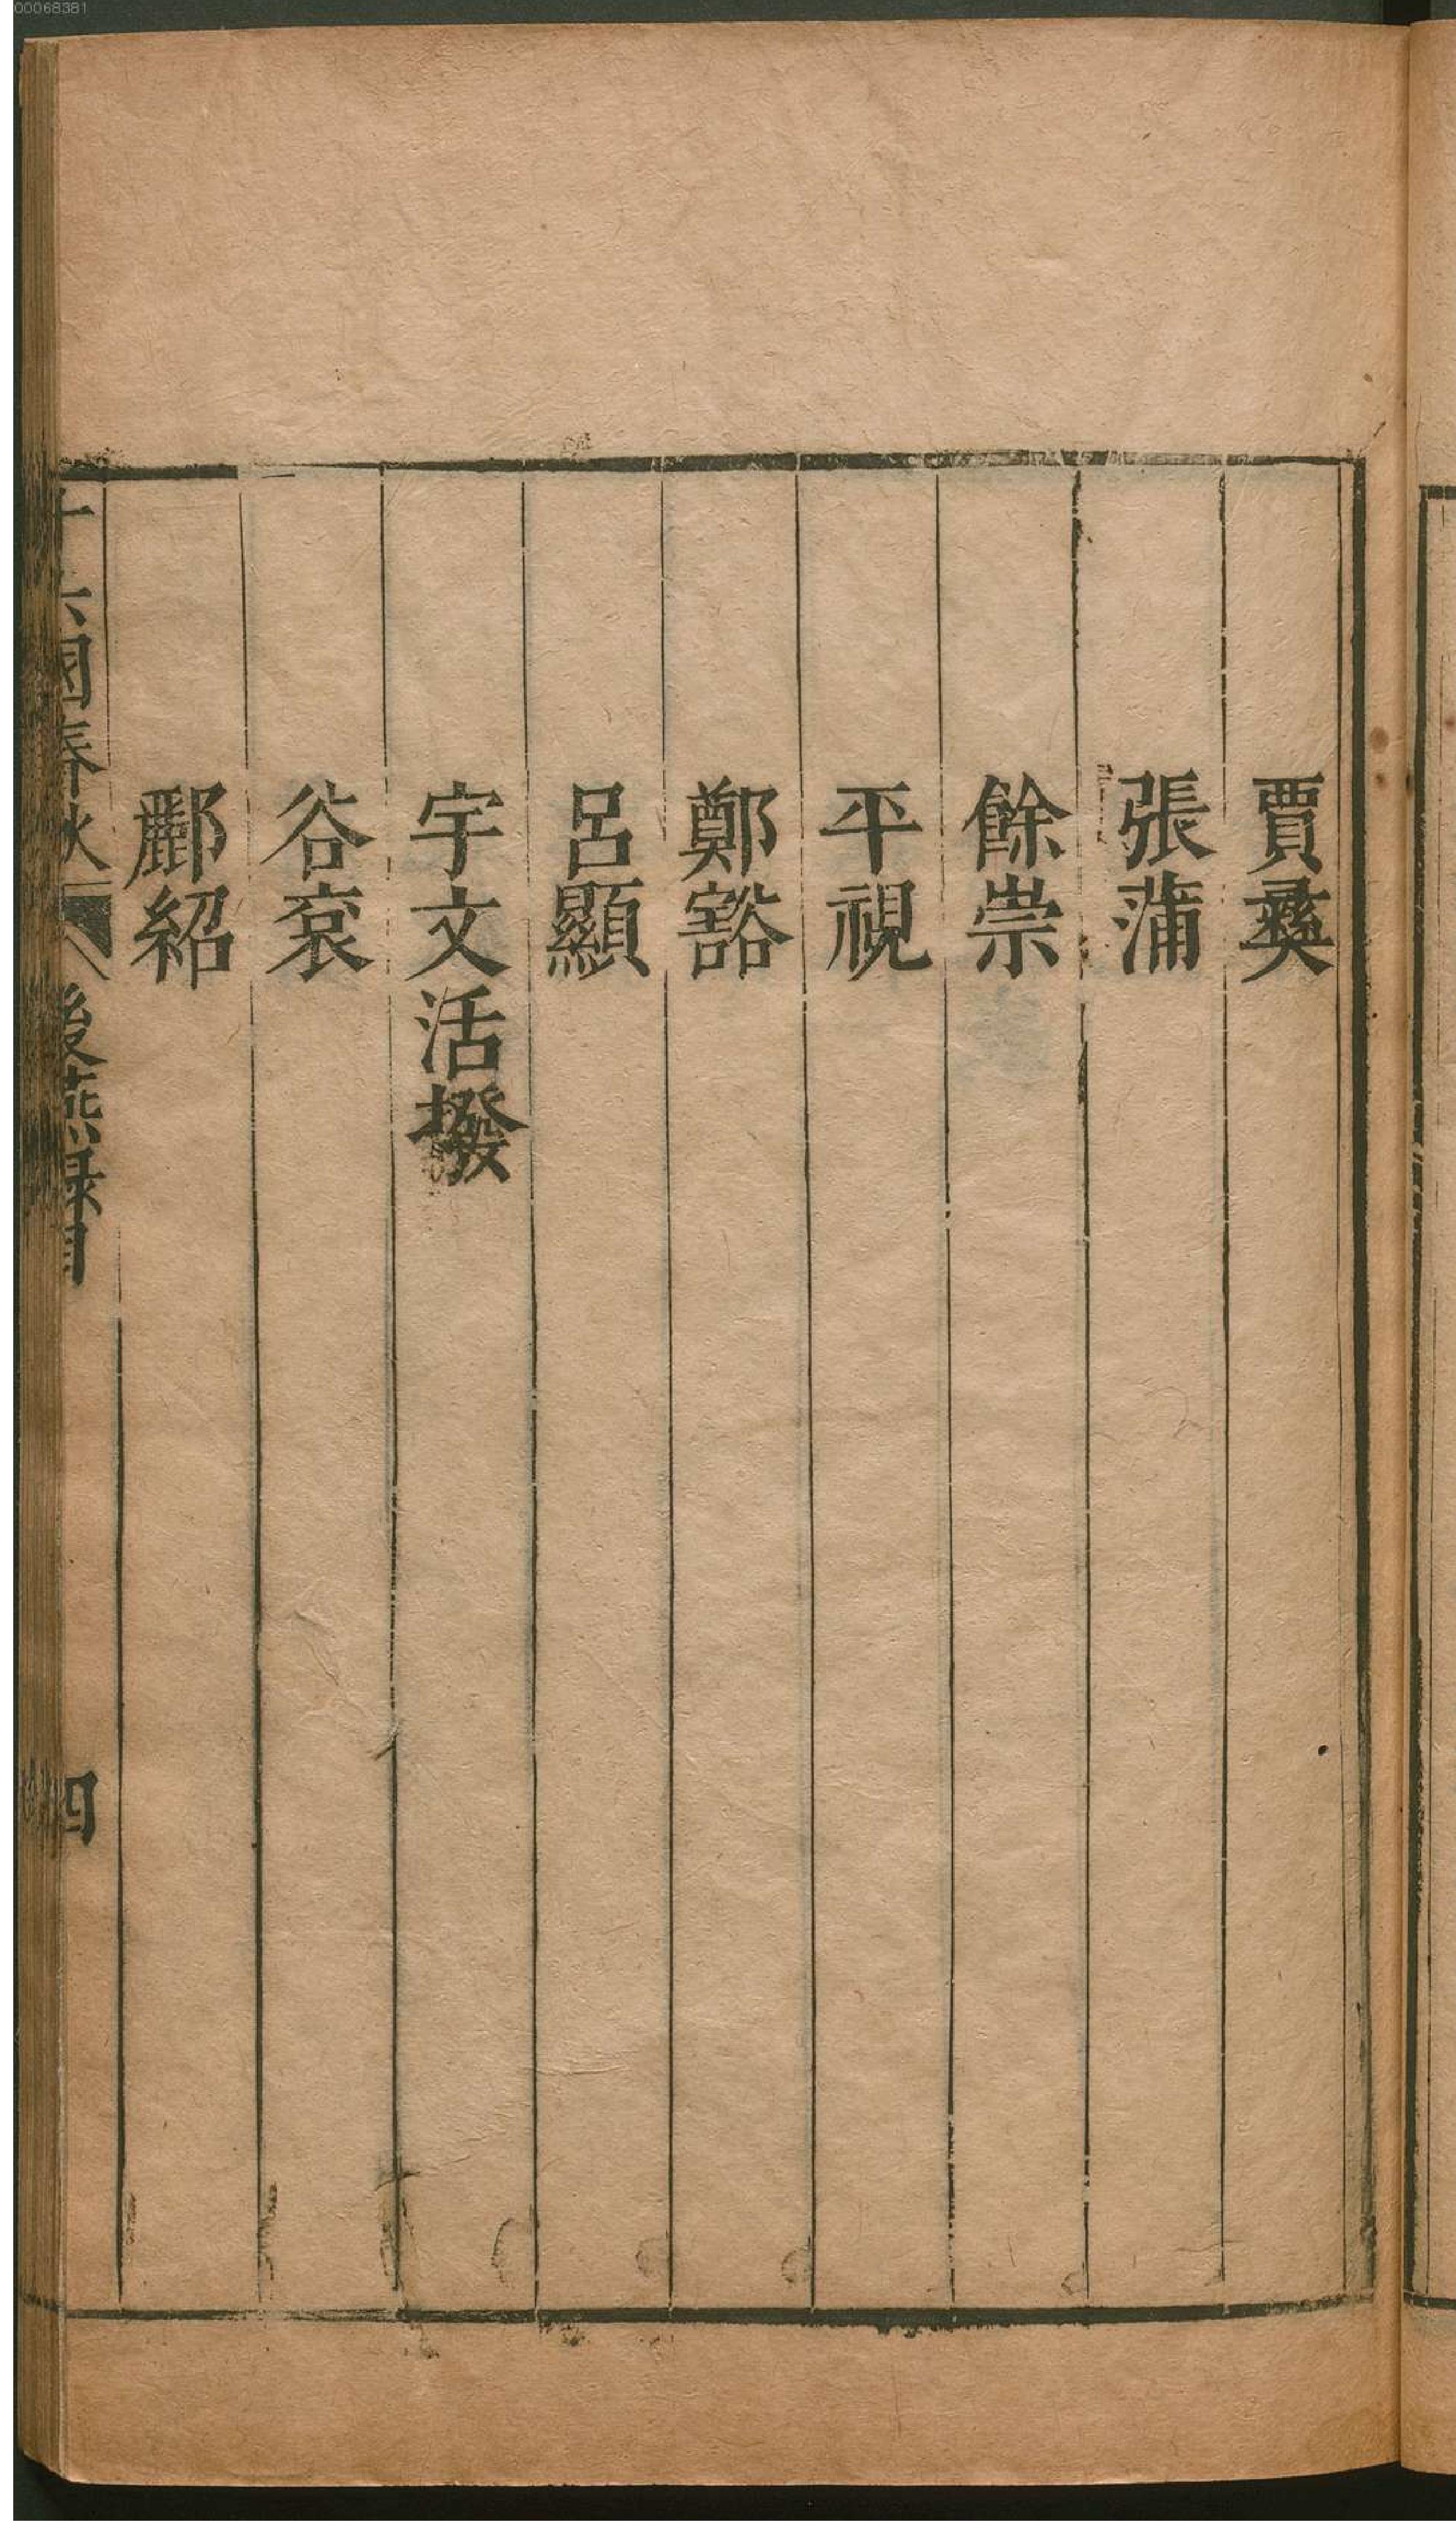 賈彝
張蒲
餘崇
平視
鄭豁
呂顯
宇文活撥
谷袞
酈紹
十六國春秋 後燕録目 四
00068381